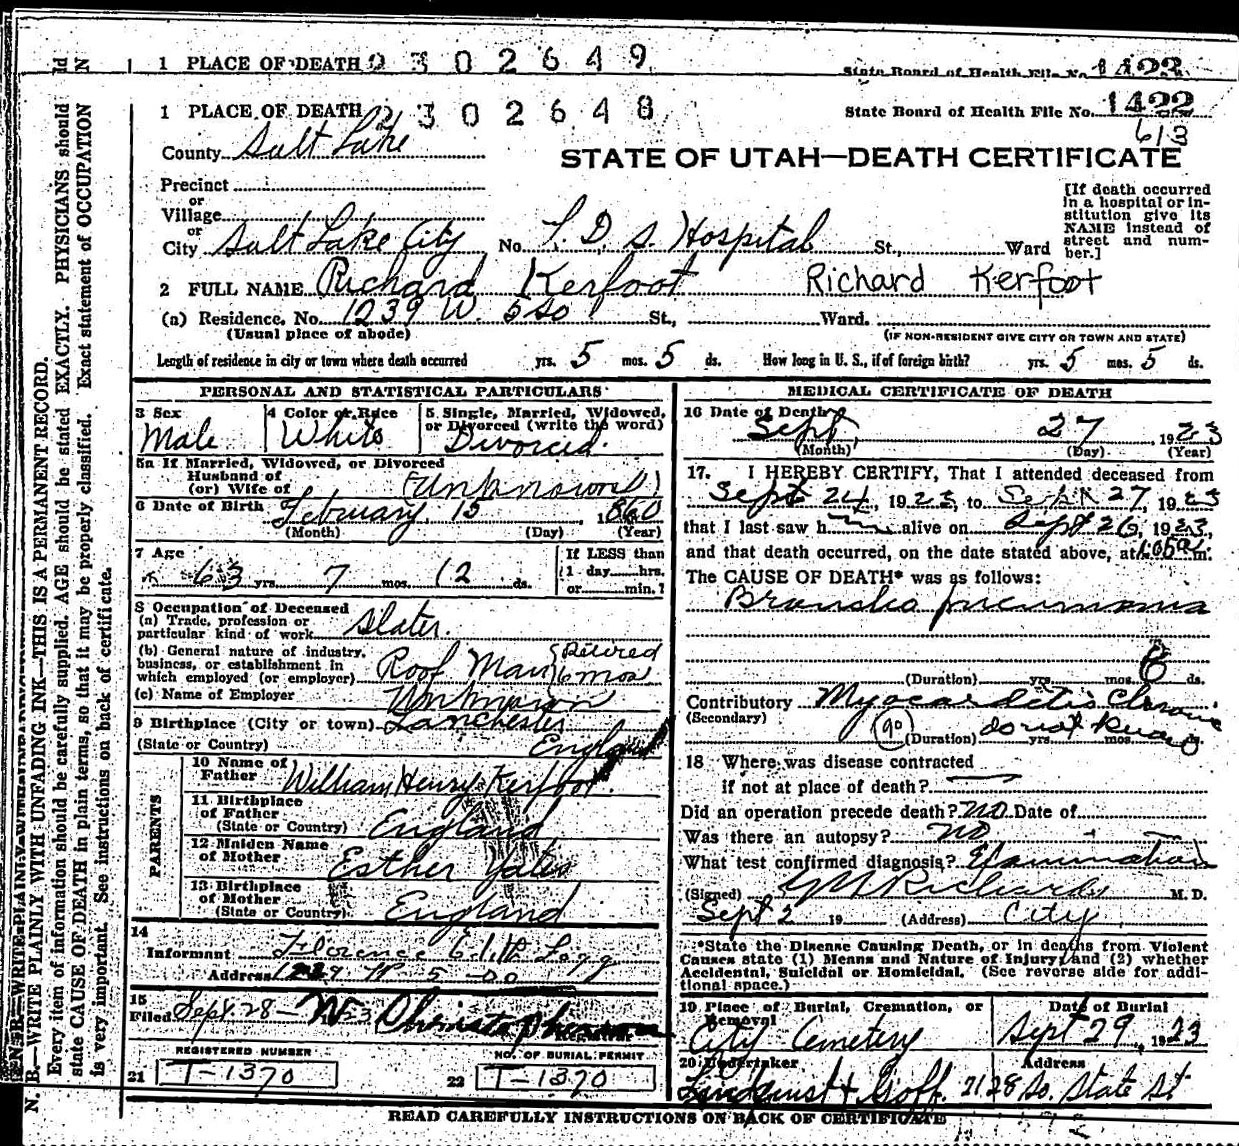 1 PLACE OF DEATH 2 3 0 2 6 4 9 State Board of Health File No. 1422
1 PLACE OF DEATH 2 3 0 2 6 4 8 State Board of Health File No. 1422
613
County Salt Lake
STATE OF UTAH—DEATH CERTIFICATE
Precinct
or
Village
or
City Salt Lake City No. L. D. S. Hospital St., Ward
[If death occurred
in a hospital or in-
stitution give its
NAME instead of
street and num-
ber.]
2 FULL NAME Richard Kerfoot Richard Kerfoot
(a) Residence. No. 1239 W. 5 So St., Ward.
(Usual place of abode) (IF NON-RESIDENT GIVE CITY OR TOWN AND STATE)
Length of residence in city or town where death occurred yrs. 5 mos. 5 ds. How long in U. S., if of foreign birth? yrs. 5 mos. 5 ds.
PERSONAL AND STATISTICAL PARTICULARS
3 Sex
Male
4 Color or Race
White
5 Single, Married, Widowed,
or Divorced (write the word)
Divorced.
5a If Married, Widowed, or Divorced
Husband of
(or) Wife of (Unknown)
6 Date of Birth February 15, 1860
(Month) (Day) (Year)
7 Age
63 yrs. 7 mos. 12 ds.
If LESS than
1 day hrs.
or min.?
8 Occupation of Deceased
(a) Trade, profession or
particular kind of work Slater.
(b) General nature of industry,
business, or establishment in
which employed (or employer) Roof Man Retired 6 mos
(c) Name of Employer Unknown
9 Birthplace (City or town) Lanchester
(State or Country) England
PARENTS
10 Name of
Father William Henry Kerfoot.
11 Birthplace
of Father
(State or Country) England
12 Maiden Name
of Mother Esther Yates
13 Birthplace
of Mother
(State or Country) England
14
Informant Florence Edith Fogg
Address 1239 W 5 So
15
Filed Sept. 28 Christopherson
Registrar
REGISTERED NUMBER
21 T-1370
NO. OF BURIAL PERMIT
22 T-1370
MEDICAL CERTIFICATE OF DEATH
16 Date of Death
Sept. 27, 1923
(Month) (Day) (Year)
17. I HEREBY CERTIFY, That I attended deceased from
Sept 24, 1923, to Sept 27, 1923
that I last saw h alive on Sept 26, 1923,
and that death occurred, on the date stated above, at m.
The CAUSE OF DEATH* was as follows:
Broncho pneumonia
(Duration) yrs. mos. ds.
Contributory Myocarditis Chronic
(Secondary)
(90) (Duration) do not know yrs. mos. ds.
18 Where was disease contracted
if not at place of death?
Did an operation precede death? no Date of
Was there an autopsy? no
What test confirmed diagnosis? Examination
(Signed) G M Richards M. D.
Sept 2 19 (Address) City
*State the Disease Causing Death, or in deaths from Violent
Causes state (1) Means and Nature of Injury; and (2) whether
Accidental, Suicidal or Homicidal. (See reverse side for addi-
tional space.)
19 Place of Burial, Cremation, or
Removal
City Cemetery
Date of Burial
Sept 29, 1923
20 Undertaker
Lindquist & Goff.
Address
2128 So. State St
READ CAREFULLY INSTRUCTIONS ON BACK OF CERTIFICATE
N. B.—WRITE PLAINLY WITH UNFADING INK—THIS IS A PERMANENT RECORD.
Every item of information should be carefully supplied. AGE should be stated EXACTLY. PHYSICIANS should
state CAUSE OF DEATH in plain terms, so that it may be properly classified. Exact statement of OCCUPATION
is very important. See instructions on back of certificate.